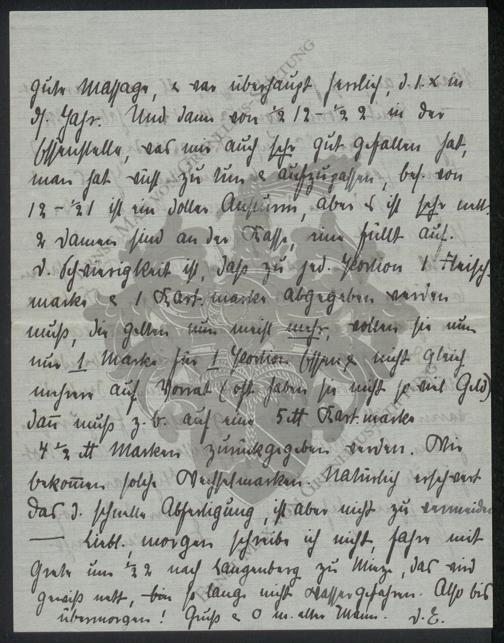 gute Massage, & war überhaupt herrlich, d. 1. x in
ds. Jahr. Und dann von ½ 12 – ½ 2 in der
Essenstelle, was mir auch sehr gut gefallen hat,
man hat viel zu tun & aufzupassen, bes. von
12 – ½ 1 ist ein doller Ansturm, aber es ist sehr nett.
2 Damen sind an der Kasse, eine füllt auf.
D. Schwierigkeit ist, daß zu jed. Portion 1 Fleisch
marke & 1 Kart. marke abgegeben werden
muß, die gelten nun meist mehr, wollen sie nun
nur 1 Marke für 1 Portion Essen & nicht gleich
mehrere auf Vorrat (oft haben sie nicht so viel Geld)
dann muß z. b. auf eine 5 ℔ Kart. marke
4 ½ ℔ Marken zurückgegeben werden. Wir
bekommen solche Wechselmarken. Natürlich erschwert
das d. schnelle Abfertigung, ist aber nicht zu vermeiden
— Liebl., morgen schreibe ich nicht, fahre mit
Grete um ½ 2 nach Langenberg zu Mieze, das wird
gewiß nett, bin so lange nicht Wasser gefahren. Also bis
übermorgen! Gruß & o m. alter Mann. d. E.